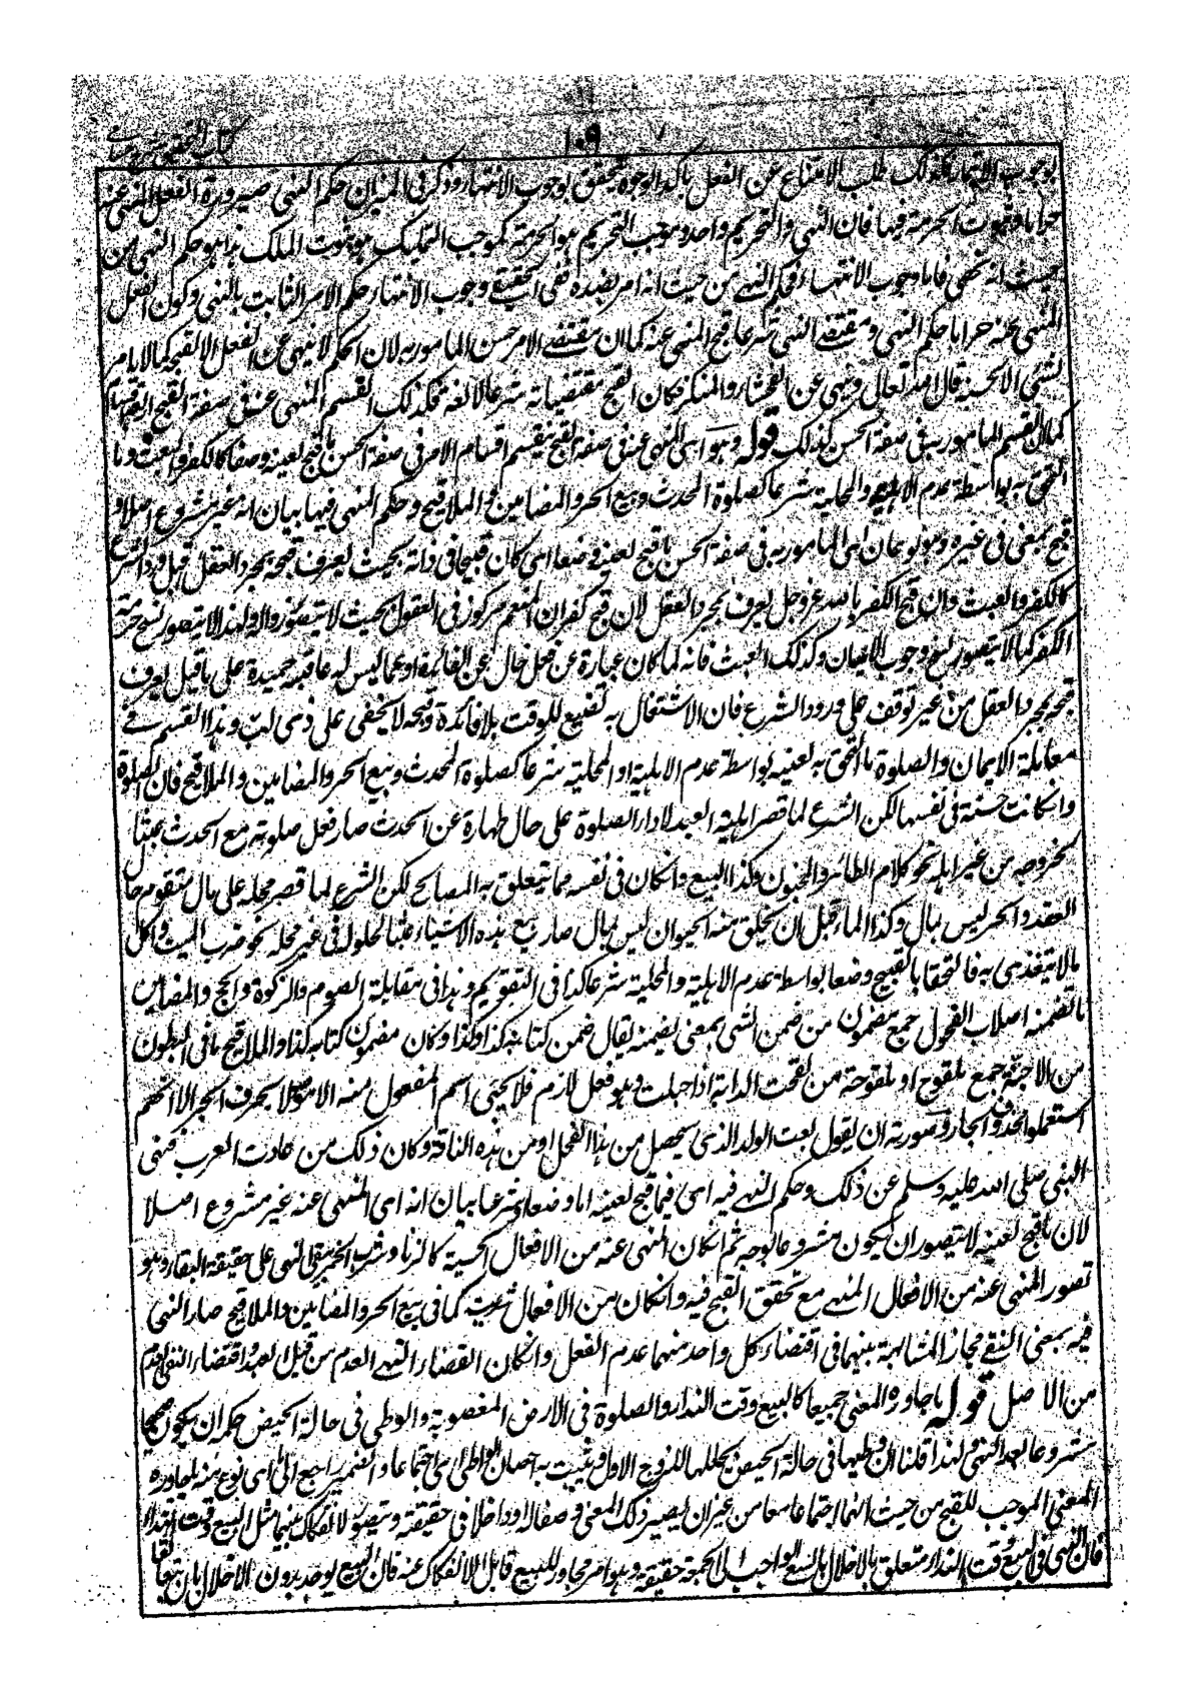 ١٠٩ كتاب التحقيق شرح حسامي
لوجوب الايتمار فكذلك طلب الامتناع عن الفعل باكد الوجوه تحقق لوجوب الانتهاء وذكر فى الميزان حكم النهى صيرورة الفعل المنهى عنه
حراما وثبوت الحرمة فيها فان النهى والتحريم واحد وموجب التحريم هو الحرمة كموجب التمليك هو ثبوت الملك هذا هو حكم النهى من
حيث انه نهى فاما وجوب الانتهاء فحكم النهى من حيث انه امر بضده ففى التحقيق وجوب الانتهاء حكم الامر الثابت بالنهى وكون الفعل
المنهى عنه حراما حكم النهى ومقتضى النهى شرعا قبح المنهى عنه كما ان مقتضى الامر حسن المامور به لان الحكيم لا ينهى عن الفعل الا لقبحه كما لا يامر
بشئ الا لحسنه قال الله تعالى وينهى عن الفحشاء والمنكر فكان القبح من مقتضياته شرعا لا لغة فكذلك القسم المنهى عنه فى صفة القبح
كما ان القسم المامور به فى صفة الحسن كذلك قوله وهو اى المنهى عنه فى صفة القبح ينقسم اقسام الامر فى صفة الحسن ما قبح لعينه وصفا كالكفر والعبث وما
التحق به بواسطة عدم الاهلية والمحلية شرعا كصلوة المحدث وبيع الحر والمضامين والملاقيح وحكم النهى فيها بيان انه غير مشروع اصلا و
قبح لمعنى فى غيره وهو نوعان اى المامور به فى صفة الحسن ما قبح لعينه وضعا اى كان قبيحا فى ذاته بحيث يعرف قبحه بمجرد العقل قبل ورود الشرع
كالكفر والعبث فان قبح الكفر بالله عز وجل يعرف بمجرد العقل لان قبح كفران المنعم مركوز فى العقول بحيث لا يتصور زواله ولهذا لا يتصور نسخ حرمة
الكفر كما لا يتصور نسخ وجوب الايمان وكذلك العبث فانه لما كان عبارة عن فعل خال عن الفائدة او عما ليس له عاقبة حميدة على ما قيل يعرف
قبحه بمجرد العقل من غير توقف على ورود الشرع فان الاشتغال به تضييع للوقت بلا فائدة وقبحه لا يخفى على ذى لب وهذا القسم فى
مقابلة الايمان والصلوة ما التحق به لعينه بواسطة عدم الاهلية او المحلية شرعا كصلوة المحدث وبيع الحر والمضامين والملاقيح فان الصلوة
وانكانت حسنة فى نفسها لكن الشرع لما قصر اهلية العبد لاداء الصلوة على حال طهارة عن الحدث صار فعل صلوته مع الحدث عبثا
لخروجه من غير اهله نحو كلام الطائر والمجنون وكذا البيع وانكان فى نفسه مما يتعلق به المصالح لكن الشرع لما قصر محله على مال متقوم حال
العقد والحر ليس بمال وكذا الماء قبل ان يخلق منه الحيوان ليس بمال صار بيع هذه الاشياء عبثا لحلوله فى غير محله نحو ضرب الميت واكل
ما لا يتغذى به فالتحقا بالقبيح وضعا بواسطة عدم الاهلية والمحلية شرعا كذا فى التقويم وهذا فى مقابلة الصوم والزكوة والحج والمضامين
ما تضمنه اصلاب الفحول جمع مضمون من ضمن الشى بمعنى تضمنه يقال ضمن كتابه كذا وكذا وكان مضمون كتابه كذا والملاقيح ما فى البطون
من الاجنة جمع ملقوح او ملقوحة من لقحت الدابة اذا حبلت وهو فعل لازم فلا يجئ اسم المفعول منه الا موصولا بحرف الجر الا انهم
استعملوا بحذف الجار وصورته ان يقول بعت الولد الذى سيحصل من هذا الفحل او من هذه الناقة وكان ذلك من عادت العرب فنهى
النبى صلى الله عليه وسلم عن ذلك وحكم النهى فيه اى فيما قبح لعينه اما وضعا وشرعا بيان انه اى المنهى عنه غير مشروع اصلا
لان ما قبح لعينه لا يتصور ان يكون مشروعا بوجه ثم انكان المنهى عنه من الافعال الحسية كالزنا وشرب الخمر يبقى النهى على حقيقته لبقاء وهو
تصور المنهى عنه من الافعال المنهى مع تحقق القبح فيه وانكان من الافعال الشرعية كما فى بيع الحر والمضامين والملاقيح صار النهى
فيه بمعنى النفى مجاز المشابهة بينهما فى اقتضاء كل واحد منهما عدم الفعل وانكان اقتضاء النهى العدم من قبل العبد واقتضاء النفى العدم
من الاصل قوله ما جاوره المعنى جميعا كالبيع وقت النداء والصلوة فى الارض المغصوبة والوطى فى حالة الحيض حكمه ان يكون صحيحا
مشروعا بعد النهى ولهذا قلنا ان وطيها فى حالة الحيض يحللها للزوج الاول ويثبت به احصان الواطى اى اجتماعا والضمير راجع الى ما اى نوع منه ما جاوره
المعنى الموجب للقبح من حيث انهما اجتمعا معا من غير ان يصير ذلك المعنى وصفا له او داخلا فى حقيقته ويتصور الانفكاك بينهما مثل البيع وقت النداء
فان النهى فى البيع وقت النداء متعلق بالاخلال بالسعى الواجب الى الجمعة حقيقة وهو امر مجاور للبيع قابل الانفكاك عنه فان البيع يوجد بدون الاخلال بان تبايعا